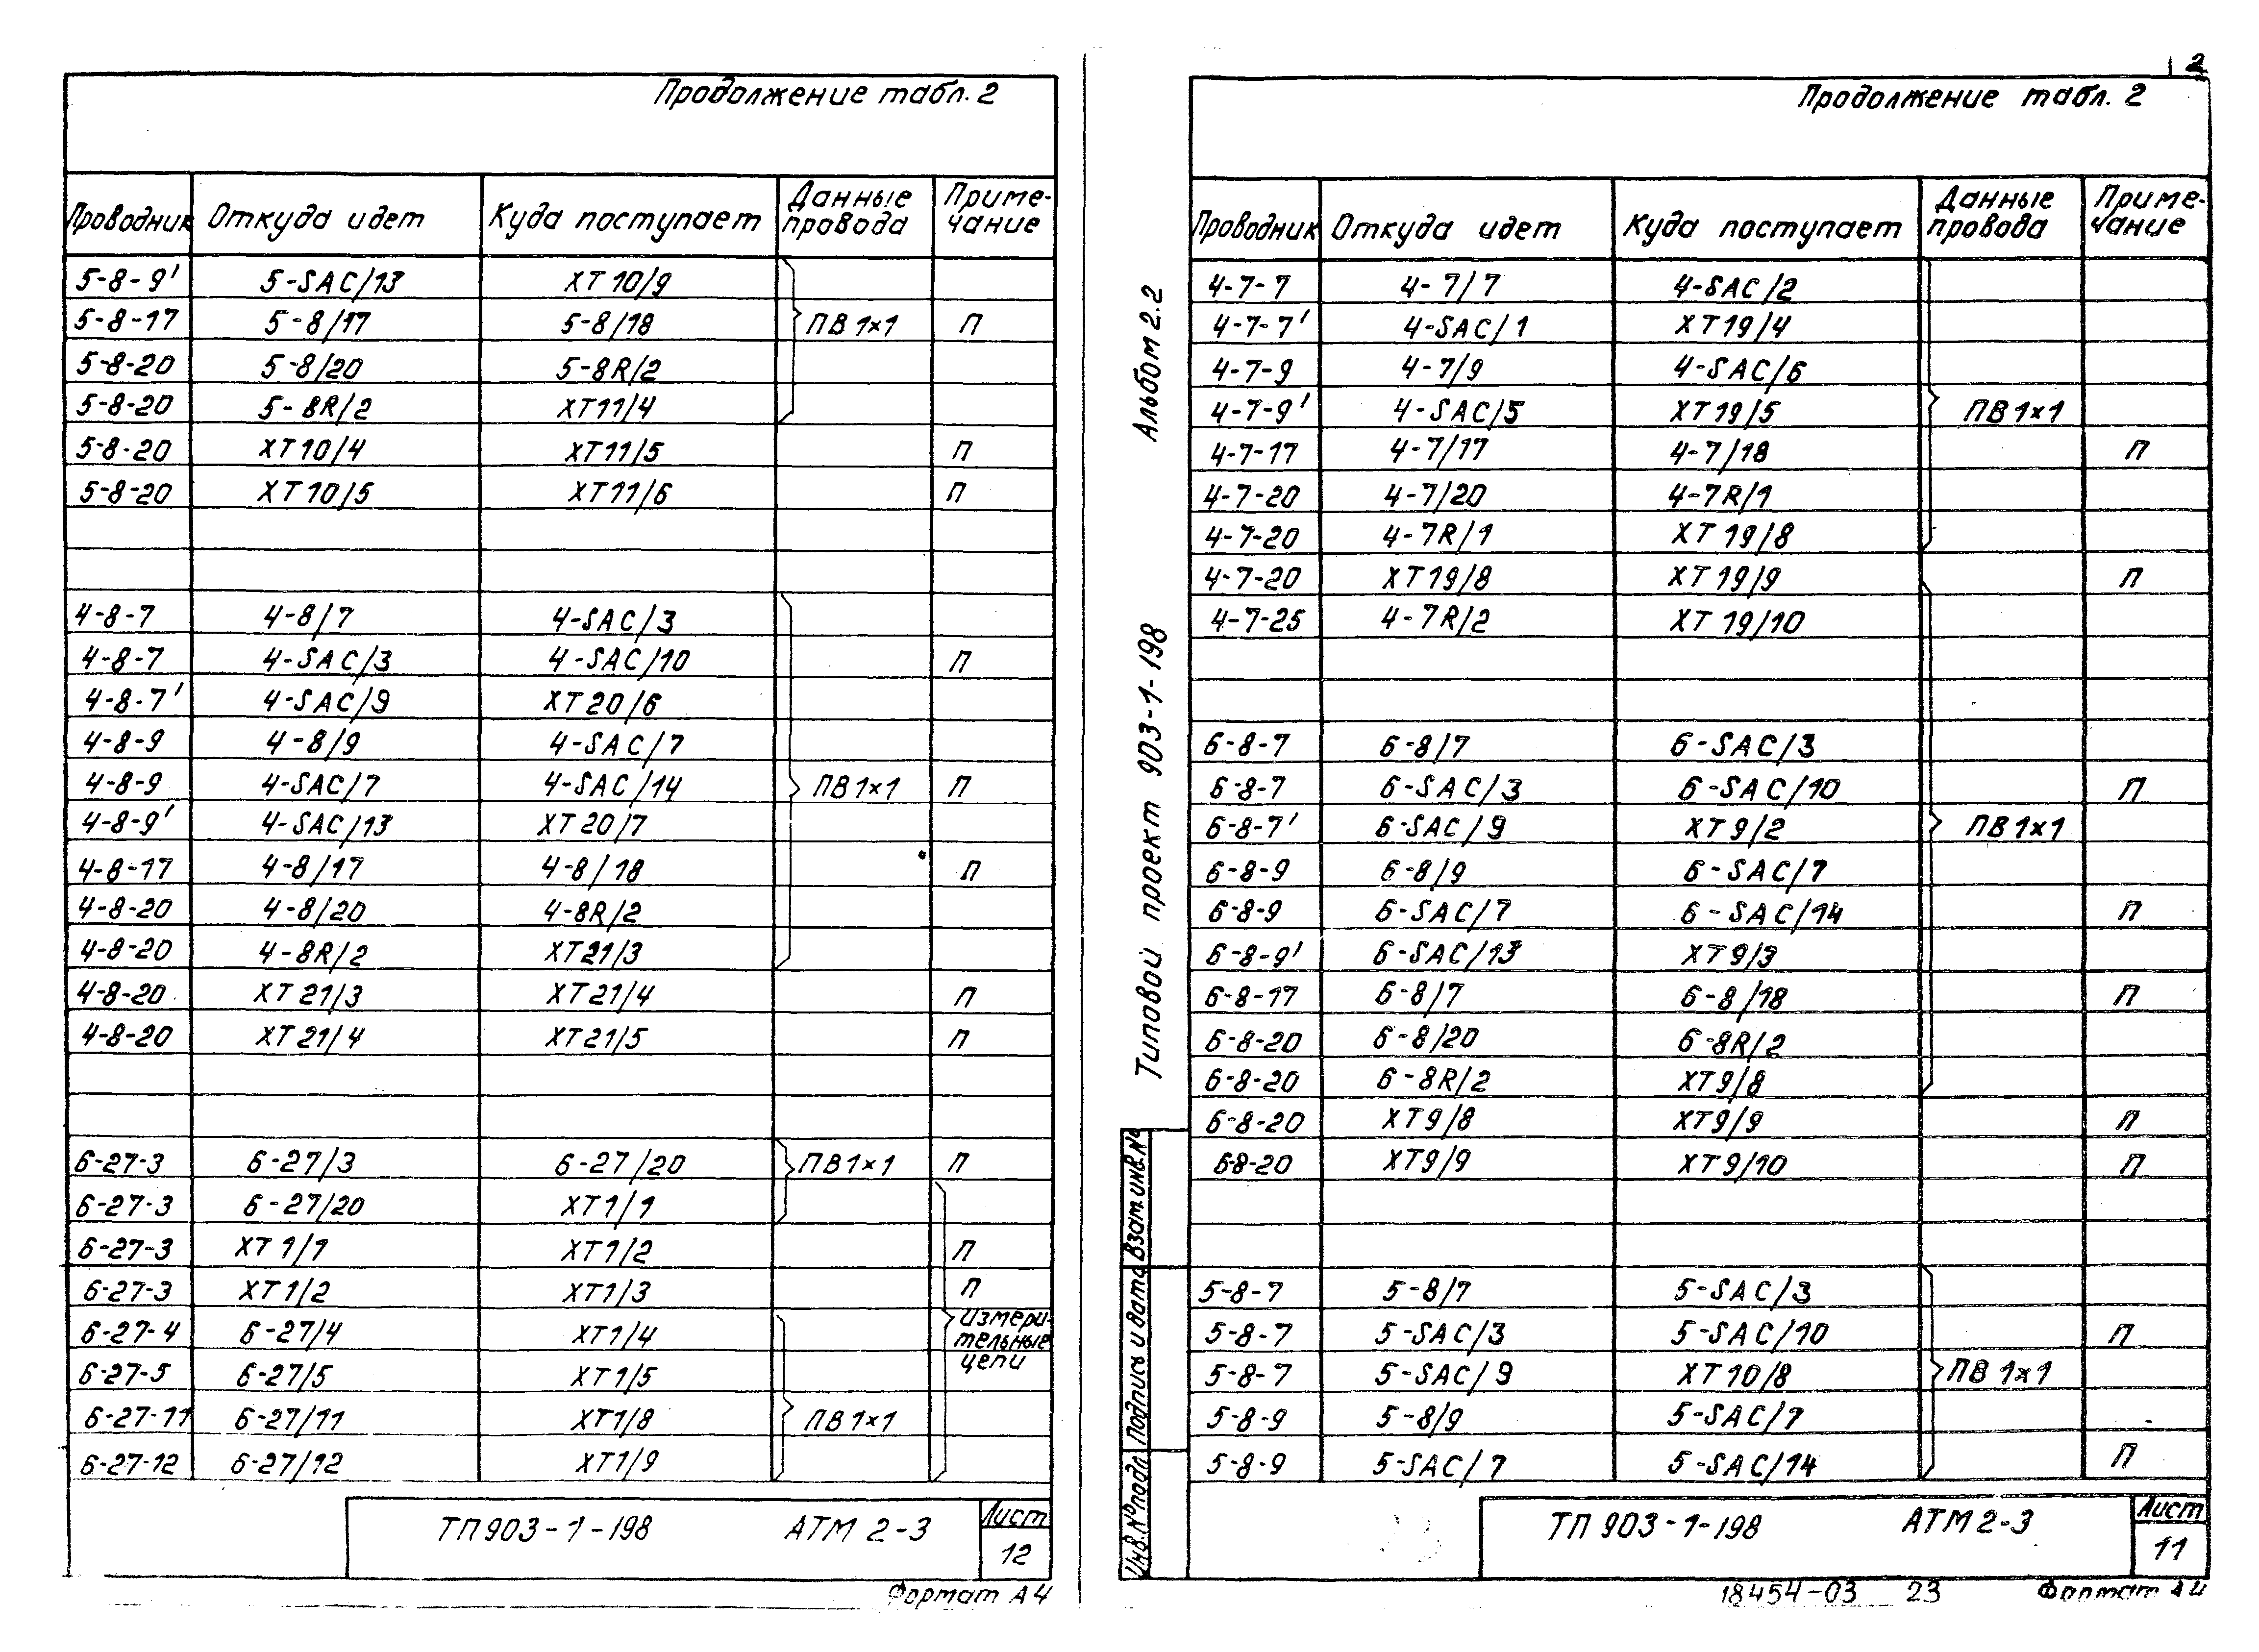 Продолжение табл. 2
Проводник Откуда идет Куда поступает Данные провода Приме-чание
5-8-9' 5-SAC/13 XT10/9
5-8-17 5-8/17 5-8/18 ПВ1×1 П
5-8-20 5-8/20 5-8R/2
5-8-20 5-8R/2 XT11/4
5-8-20 XT10/4 XT11/5 П
5-8-20 XT10/5 XT11/6 П
4-8-7 4-8/7 4-SAC/3
4-8-7 4-SAC/3 4-SAC/10 П
4-8-7' 4-SAC/9 XT20/6
4-8-9 4-8/9 4-SAC/7
4-8-9 4-SAC/7 4-SAC/14 ПВ1×1 П
4-8-9' 4-SAC/13 XT20/7
4-8-17 4-8/17 4-8/18 П
4-8-20 4-8/20 4-8R/2
4-8-20 4-8R/2 XT21/3
4-8-20 XT21/3 XT21/4 П
4-8-20 XT21/4 XT21/5 П
6-27-3 6-27/3 6-27/20 ПВ1×1 П
6-27-3 6-27/20 XT1/1
6-27-3 XT1/1 XT1/2 П
6-27-3 XT1/2 XT1/3 П
6-27-4 6-27/4 XT1/4 измери-тельные цепи
6-27-5 6-27/5 XT1/5
6-27-11 6-27/11 XT1/8 ПВ1×1
6-27-12 6-27/12 XT1/9
ТП903-1-198 АТМ2-3 Лист
12
Формат А4
2
Продолжение табл. 2
Проводник Откуда идет Куда поступает Данные провода Приме-чание
4-7-7 4-7/7 4-SAC/2
4-7-7' 4-SAC/1 XT19/4
4-7-9 4-7/9 4-SAC/6
4-7-9' 4-SAC/5 XT19/5 ПВ1×1
4-7-17 4-7/17 4-7/18 П
4-7-20 4-7/20 4-7R/1
4-7-20 4-7R/1 XT19/8
4-7-20 XT19/8 XT19/9 П
4-7-25 4-7R/2 XT19/10
6-8-7 6-8/7 6-SAC/3
6-8-7 6-SAC/3 6-SAC/10 П
6-8-7' 6-SAC/9 XT9/2 ПВ1×1
6-8-9 6-8/9 6-SAC/7
6-8-9 6-SAC/7 6-SAC/14 П
6-8-9' 6-SAC/13 XT9/3
6-8-17 6-8/7 6-8/18 П
6-8-20 6-8/20 6-8R/2
6-8-20 6-8R/2 XT9/8
6-8-20 XT9/8 XT9/9 П
6-8-20 XT9/9 XT9/10 П
5-8-7 5-8/7 5-SAC/3
5-8-7 5-SAC/3 5-SAC/10 П
5-8-7 5-SAC/9 XT10/8 ПВ1×1
5-8-9 5-8/9 5-SAC/7
5-8-9 5-SAC/7 5-SAC/14 П
Типовой проект 903-1-198 Альбом 2.2
Инв.№подл Подпись и дата Взам.инв.№
ТП903-1-198 АТМ2-3 Лист
11
18454-03 23 Формат А4